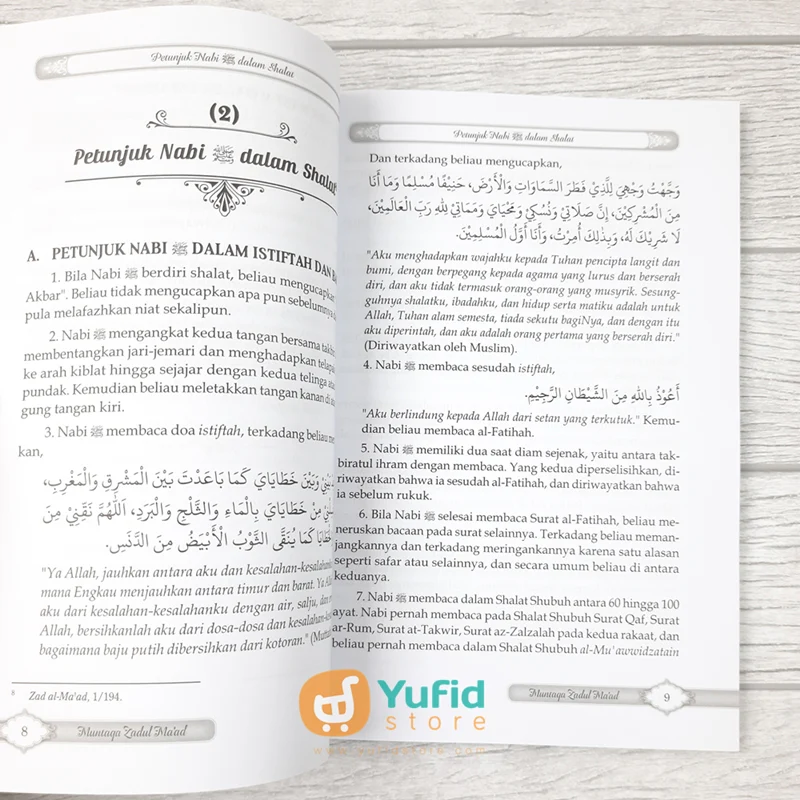 Petunjuk Nabi ﷺ dalam Shalat
(2)
Petunjuk Nabi ﷺ dalam Shalat
A. PETUNJUK NABI ﷺ DALAM ISTIFTAH DAN
1. Bila Nabi ﷺ berdiri shalat, beliau mengucapkan
Akbar". Beliau tidak mengucapkan apa pun sebelumnya
pula melafazhkan niat sekalipun.
2. Nabi ﷺ mengangkat kedua tangan bersama
membentangkan jari-jemari dan menghadapkan
ke arah kiblat hingga sejajar dengan kedua telinga
pundak. Kemudian beliau meletakkan tangan kanan di
gung tangan kiri.
3. Nabi ﷺ membaca doa istiftah, terkadang beliau
kan,
وَبَيْنَ خَطَايَايَ كَمَا بَاعَدْتَ بَيْنَ الْمَشْرِقِ وَالْمَغْرِبِ،
مِنْ خَطَايَايَ بِالْمَاءِ وَالثَّلْجِ وَالْبَرَدِ، اَللّٰهُمَّ نَقِّنِيْ مِنَ
كَمَا يُنَقَّى الثَّوْبُ الْأَبْيَضُ مِنَ الدَّنَسِ.
"Ya Allah, jauhkan antara aku dan kesalahan-kesalahanku
mana Engkau menjauhkan antara timur dan barat. Ya
aku dari kesalahan-kesalahanku dengan air, salju, dan
Allah, bersihkanlah aku dari dosa-dosa dan
bagaimana baju putih dibersihkan dari kotoran."
8 Zad al-Ma'ad, 1/194.
8 Muntaqa Zadul Ma'ad
Petunjuk Nabi ﷺ dalam Shalat
Dan terkadang beliau mengucapkan,
وَجَّهْتُ وَجْهِيَ لِلَّذِيْ فَطَرَ السَّمَاوَاتِ وَالْأَرْضَ، حَنِيْفًا مُسْلِمًا وَمَا أَنَا
مِنَ الْمُشْرِكِيْنَ، إِنَّ صَلَاتِيْ وَنُسُكِيْ وَمَحْيَايَ وَمَمَاتِيْ لِلّٰهِ رَبِّ الْعَالَمِيْنَ،
لَا شَرِيْكَ لَهُ، وَبِذٰلِكَ أُمِرْتُ، وَأَنَا أَوَّلُ الْمُسْلِمِيْنَ.
"Aku menghadapkan wajahku kepada Tuhan pencipta langit dan
bumi, dengan berpegang kepada agama yang lurus dan berserah
diri, dan aku tidak termasuk orang-orang yang musyrik. Sesung-
guhnya shalatku, ibadahku, dan hidup serta matiku adalah untuk
Allah, Tuhan alam semesta, tiada sekutu bagiNya, dan dengan itu
aku diperintah, dan aku adalah orang pertama yang berserah diri."
(Diriwayatkan oleh Muslim).
4. Nabi ﷺ membaca sesudah istiftah,
أَعُوْذُ بِاللهِ مِنَ الشَّيْطَانِ الرَّجِيْمِ.
"Aku berlindung kepada Allah dari setan yang terkutuk." Kemu-
dian beliau membaca al-Fatihah.
5. Nabi ﷺ memiliki dua saat diam sejenak, yaitu antara tak-
biratul ihram dengan membaca. Yang kedua diperselisihkan, di-
riwayatkan bahwa ia sesudah al-Fatihah, dan diriwayatkan bahwa
ia sebelum rukuk.
6. Bila Nabi ﷺ selesai membaca Surat al-Fatihah, beliau me-
neruskan bacaan pada surat selainnya. Terkadang beliau meman-
jangkannya dan terkadang meringankannya karena satu alasan
seperti safar atau selainnya, dan secara umum beliau di antara
keduanya.
7. Nabi ﷺ membaca dalam Shalat Shubuh antara 60 hingga 100
ayat. Nabi pernah membaca pada Shalat Shubuh Surat Qaf, Surat
ar-Rum, Surat at-Takwir, Surat az-Zalzalah pada kedua rakaat, dan
beliau pernah membaca dalam Shalat Shubuh al-Mu'awwidzatain
Muntaqa Zadul Ma'ad 9
Yufid
store